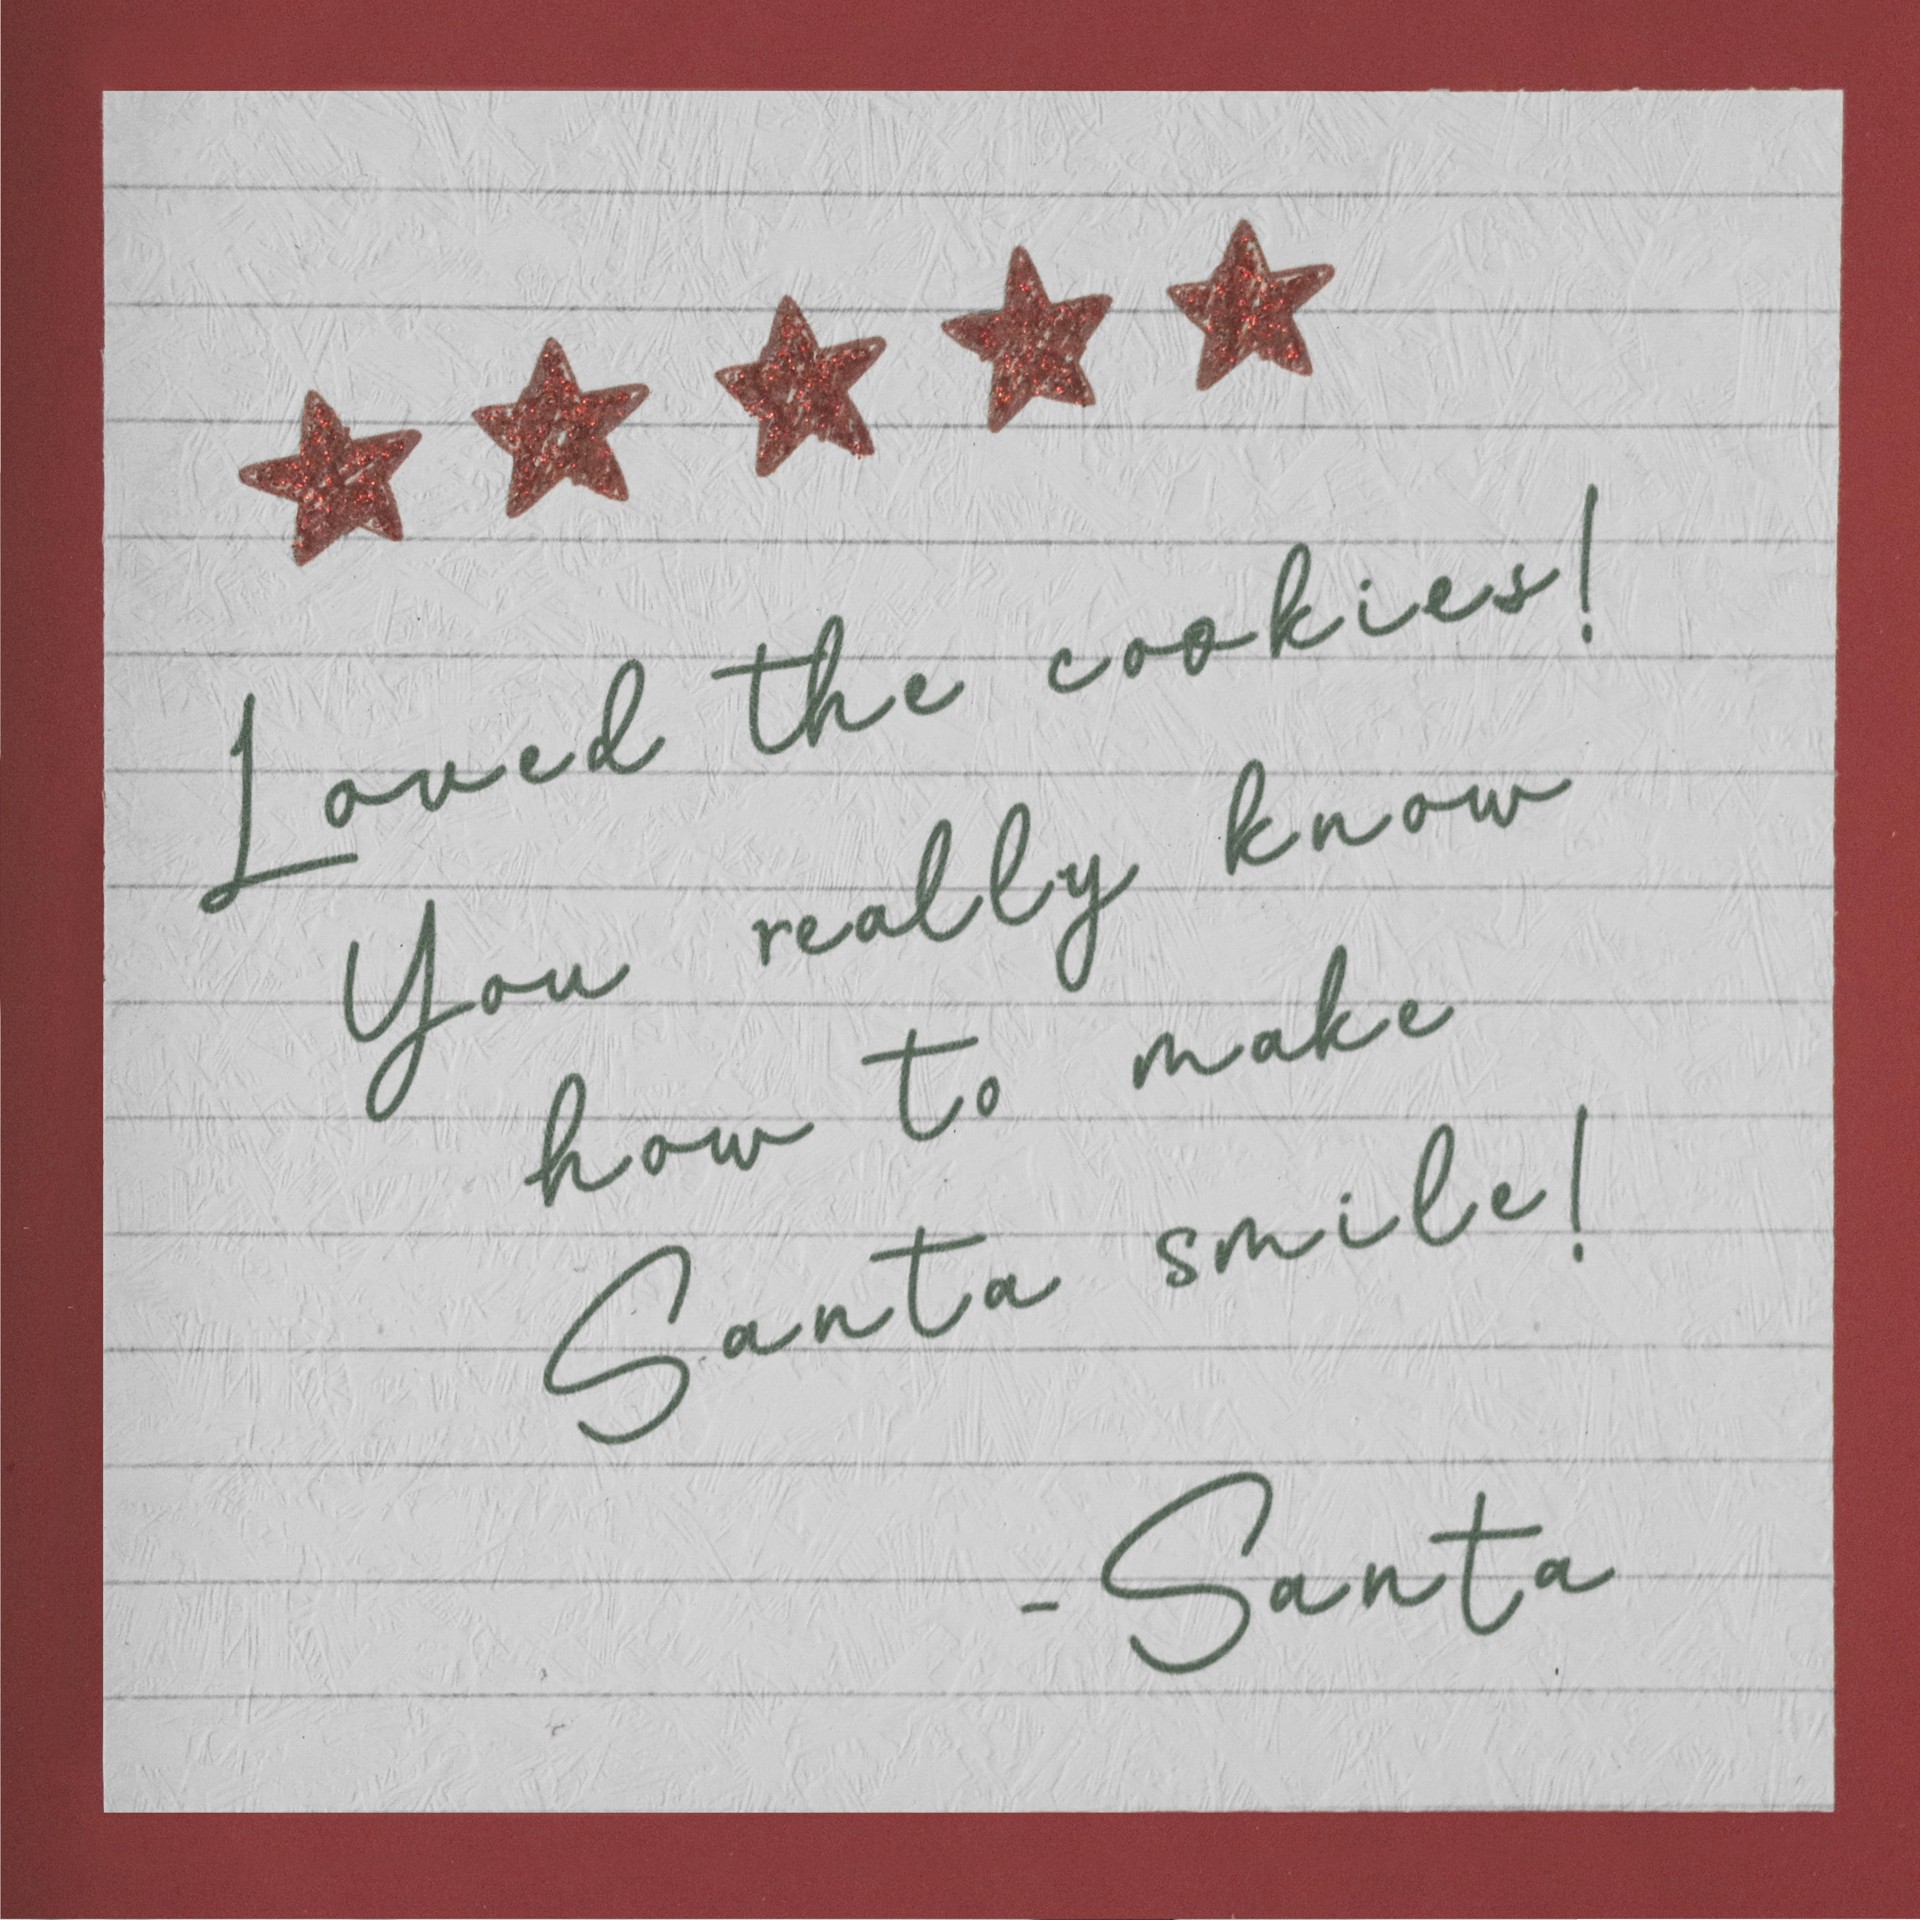 Loved the cookies!
You really know
how to make
Santa smile!
-Santa